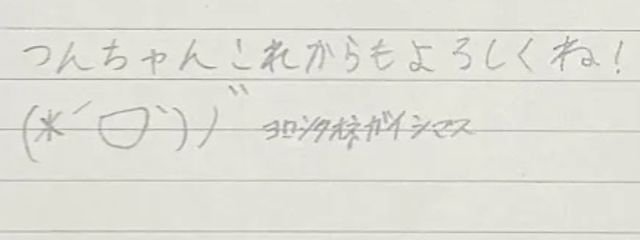 つんちゃんこれからもよろしくね!
(*´▽`)ノ゛ ヨロシクオネガイシマス